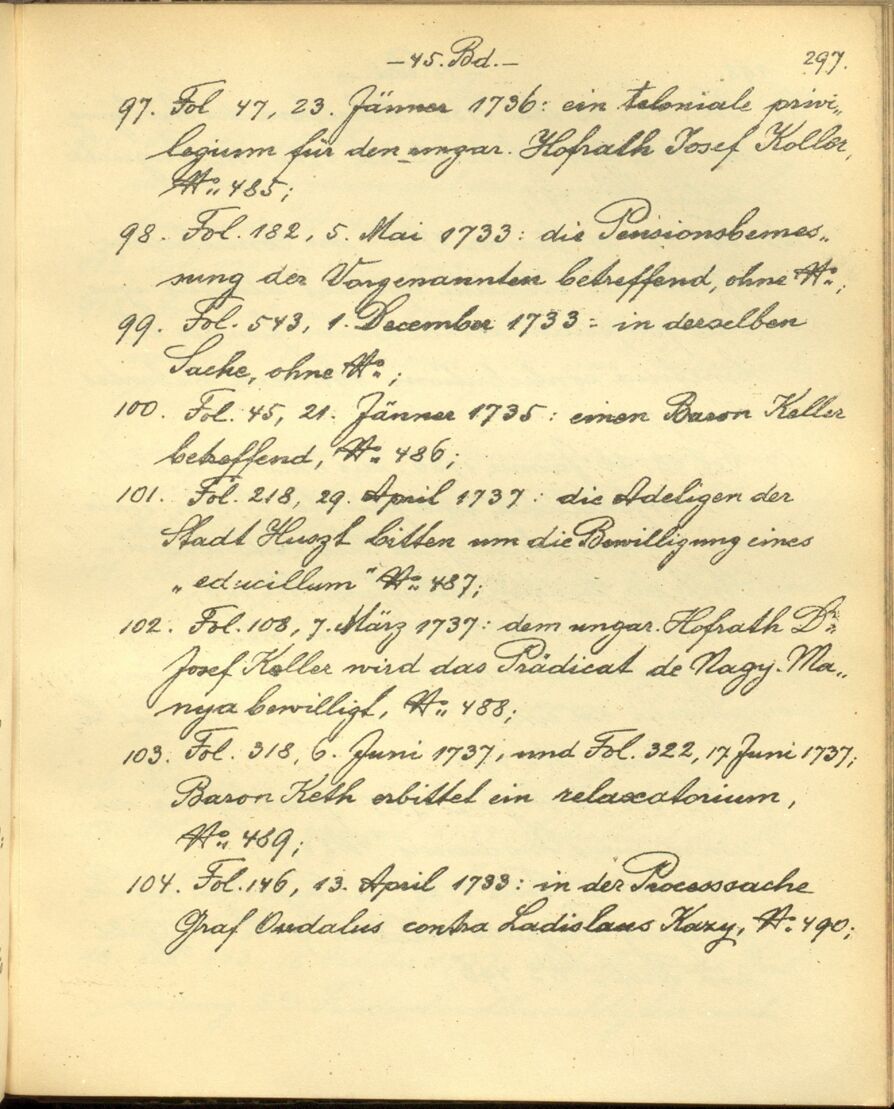 –45. Bd.–
297.
97. Fol 47, 23. Jänner 1736: ein teloniale privi„
legium für den ungar. Hofrath Josef Koller,
No: 485;
98. Fol. 182, 5. Mai 1733: die Pensionsbemes„
sung der Vorgenannten betreffend, ohne No:;
99. Fol. 543, 1. December 1733: in derselben
Sache, ohne No:;
100. Fol. 45, 21. Jänner 1735: einen Baron Keller
betreffend, No: 486;
101. Fol. 218, 29. April 1737: die Adeligen der
Stadt Huszt bitten um die Bewilligung eines
„educillum" No: 487;
102. Fol. 108, 7. März 1737: dem ungar. Hofrath Dr:
Josef Koller wird das Prädicat de Nagy-Ma„
nya bewilligt, No: 488;
103. Fol. 318, 6. Juni 1737, und Fol. 322, 17 Juni 1737;
Baron Keth erbittet ein relaxatorium,
No: 489;
104. Fol. 146, 13. April 1733: in der Processsache
Graf contra Ladislaus Kazy, No: 490;